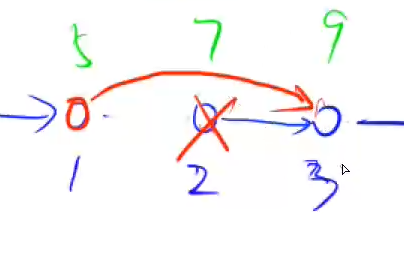 5 7 9
1 2 3